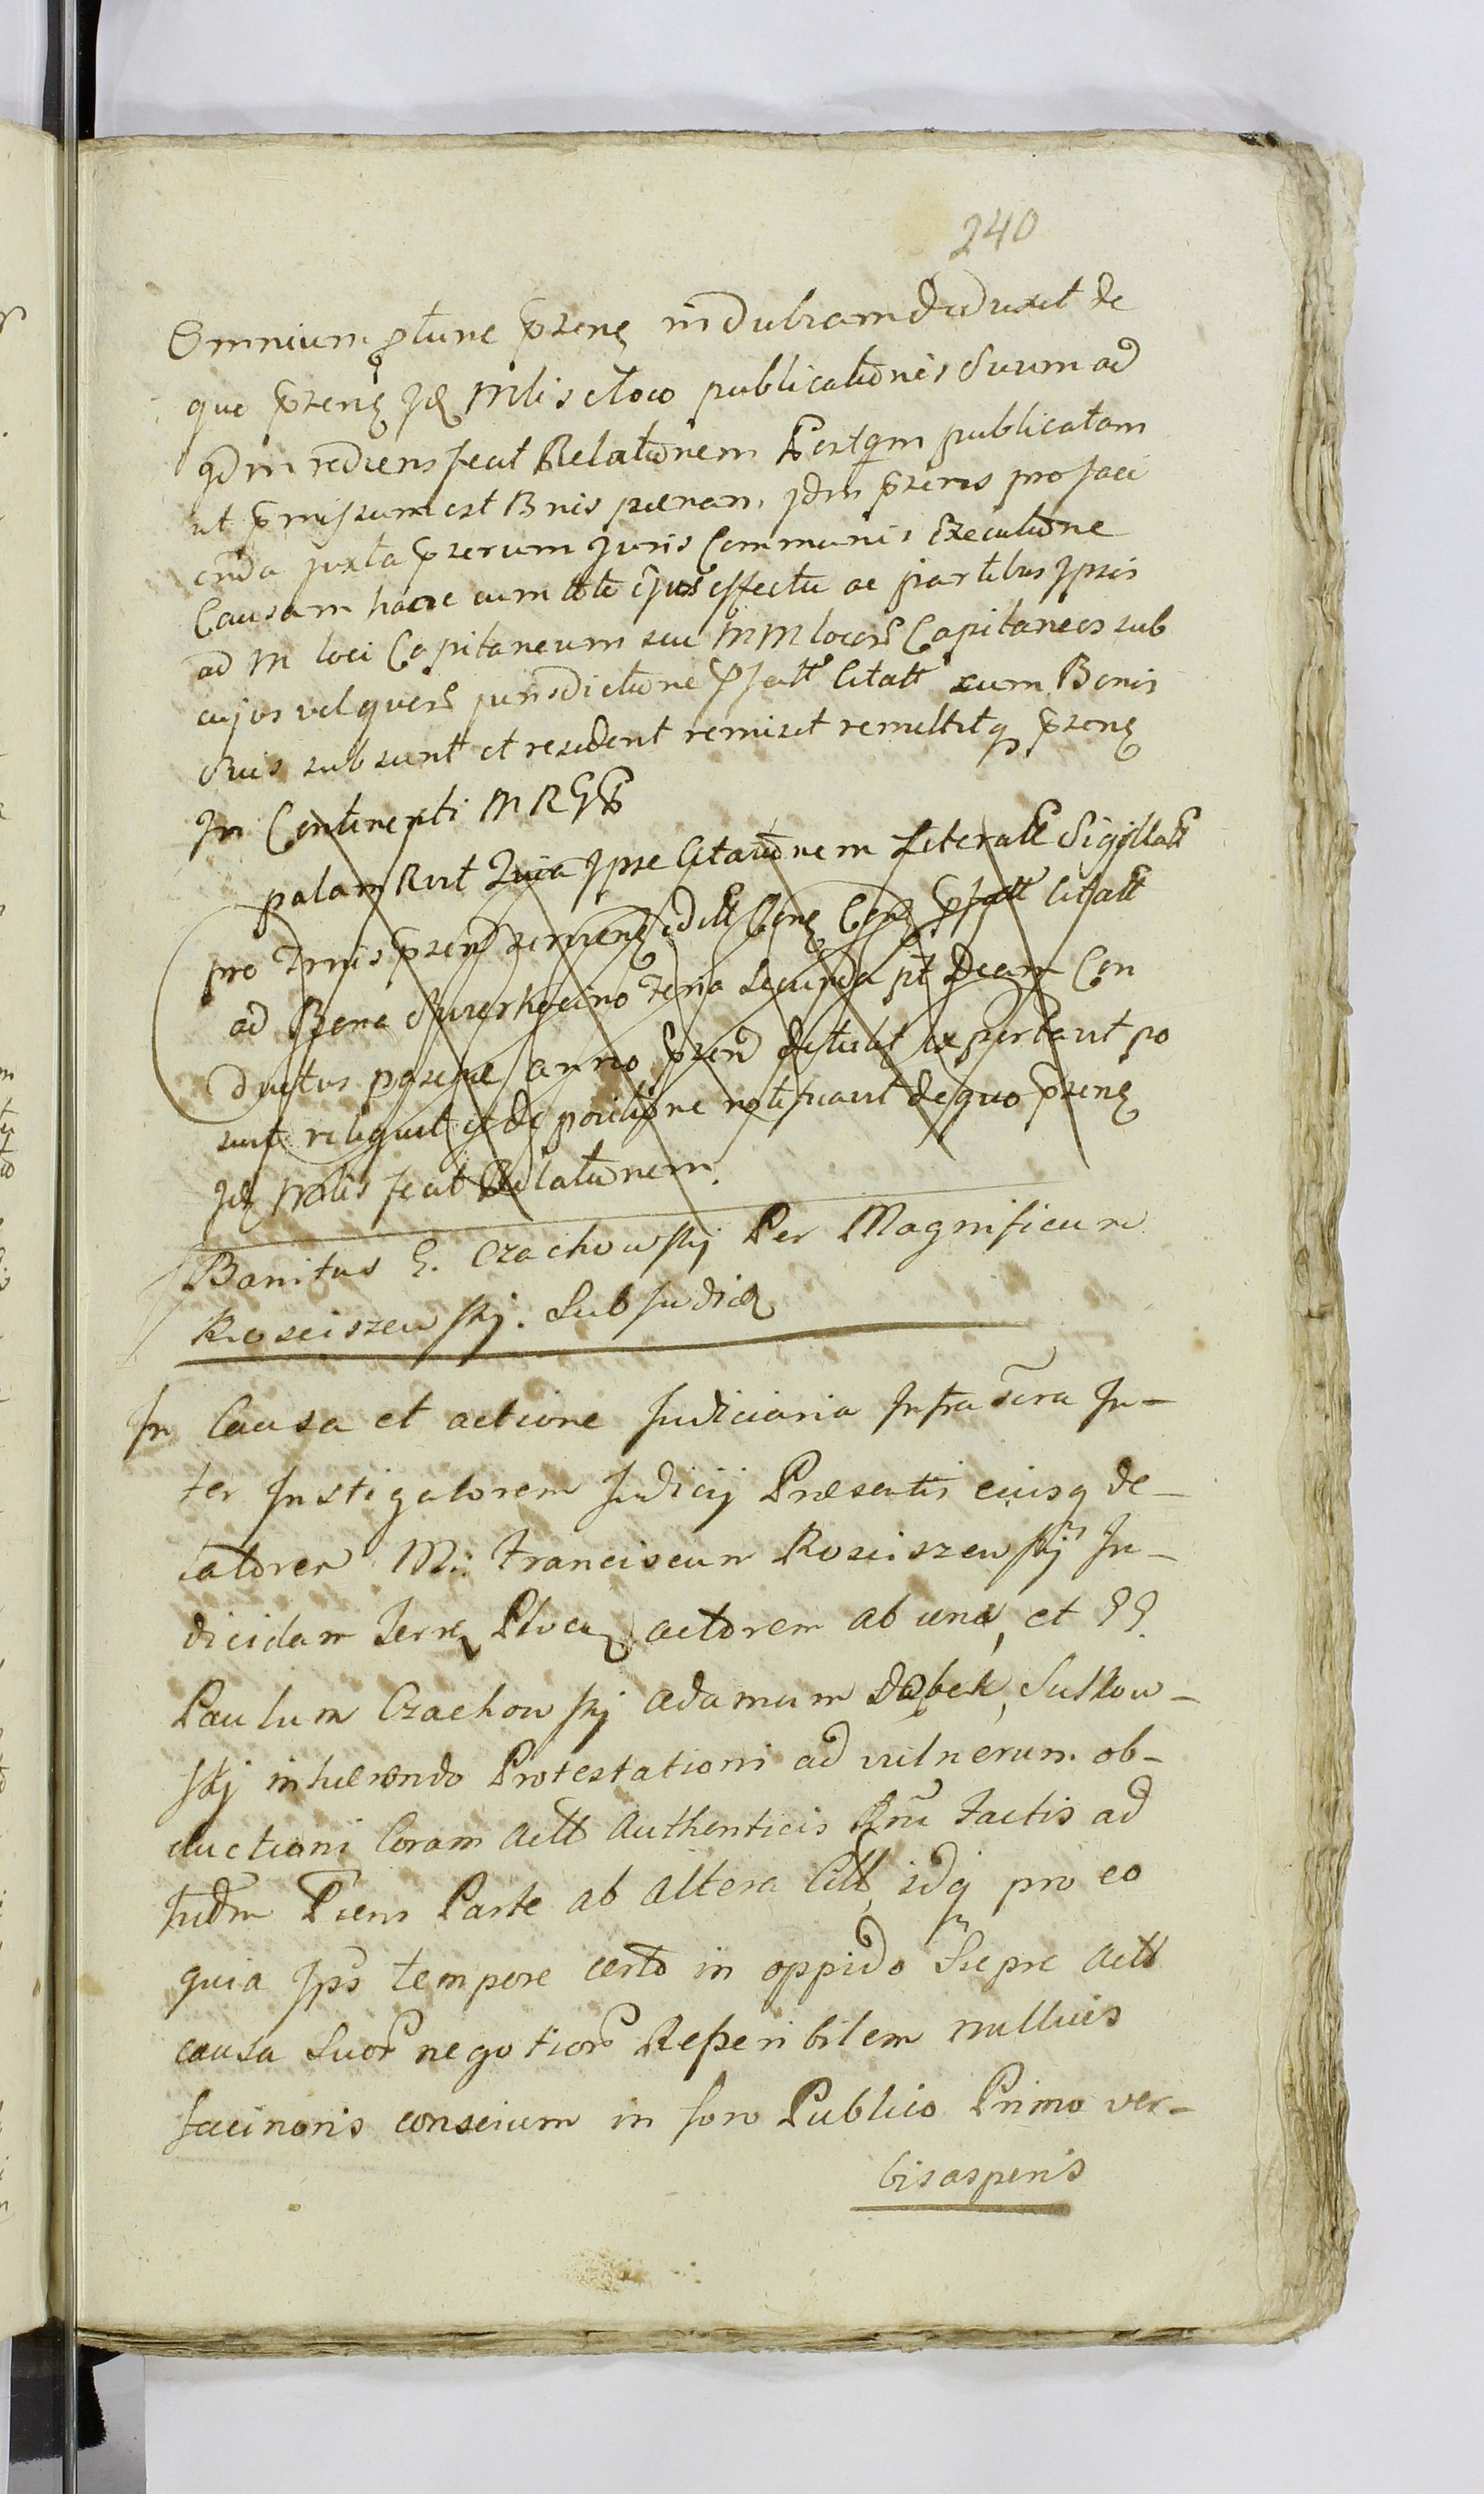 240
Omnium ptunc przens in dubiam deduxit de
quo przens Jd Mlis e loco publicationis suum ad
Jdm rediens fecit Relationem Postqm publicatam
ut pmissum est Bnis pænam, Jdm przens pro faci
enda juxta przerum Juris Communis Executione
Causam hanc cum toto ejus effectu ac partibus Ipsis
ad M loci Capitaneum seu MM locor Capitaneos sub
cujus vel quor jurisdictione pfatt Citatt cum Bonis
suis subsunt et resident remisit remittitq przens
In Continenti MRSP
palam Rvit Quia Ipse Citationem Literatt Sigillatt
pro Trnis przen pfatt Citatt
ad Bona Feria Secunda pt Con
ductus anno przen detulit po
suit reliquit et de positione notificavit de quo przens
Jd Mlis fecit Relationem.
Banitus G. Czachowskj Per Magnificum
Rosciszewskj. Subjudice
In Causa et actione Judiciaria Infra scra In-
ter Instigatorem Judicij Præsentis eiusq de-
latorem M: Franciscum Rosciszewskj Ju-
dicidam Terræ Ploceñ actorem ab una, et GG.
Paulum Czachowskj Adamum Dąbek, Sutkow-
skj inhærendo Protestationi ad vulnerum ob-
ductioni Coram Actt Authenticis Factis ad
Judm Pñens Parte ab altera Citt, idq pro eo
quia Ips tempore certo in oppido Sierpc Actt
causa Suor negotior Reperibilem nullius
facinoris conscium in foro Publico Primo ver-
bis asperis